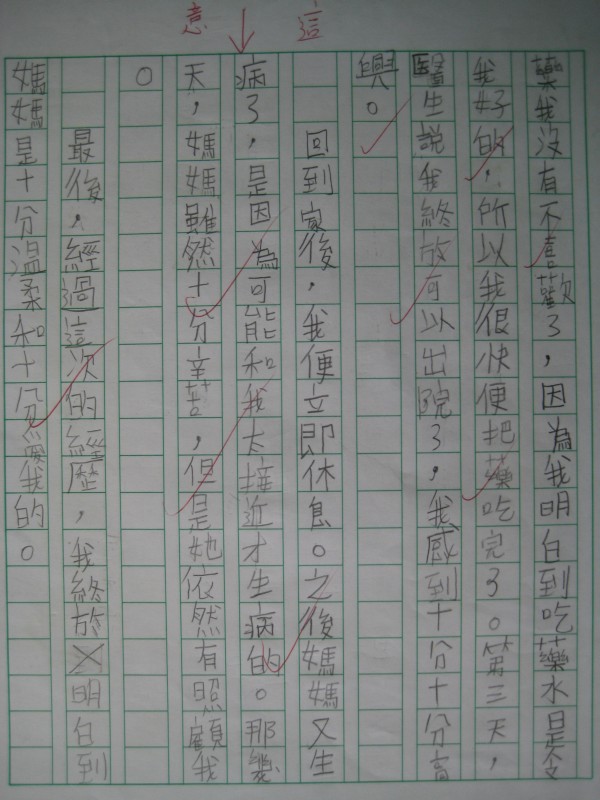 這
意
藥我沒有不喜歡了，因為我明白到吃藥水是令
我好的，所以我很快便把藥吃完了。第三天，
醫生說我終於可以出院了，我感到十分十分高
興。
回到家後，我便立即休息。之後媽媽又生
病了，是因為可能和我太接近才生病的。那幾
天，媽媽雖然十分辛苦，但是她依然有照顧我
。
最後，經過這次的經歷，我終於明白到
媽媽是十分溫柔和十分愛我的。